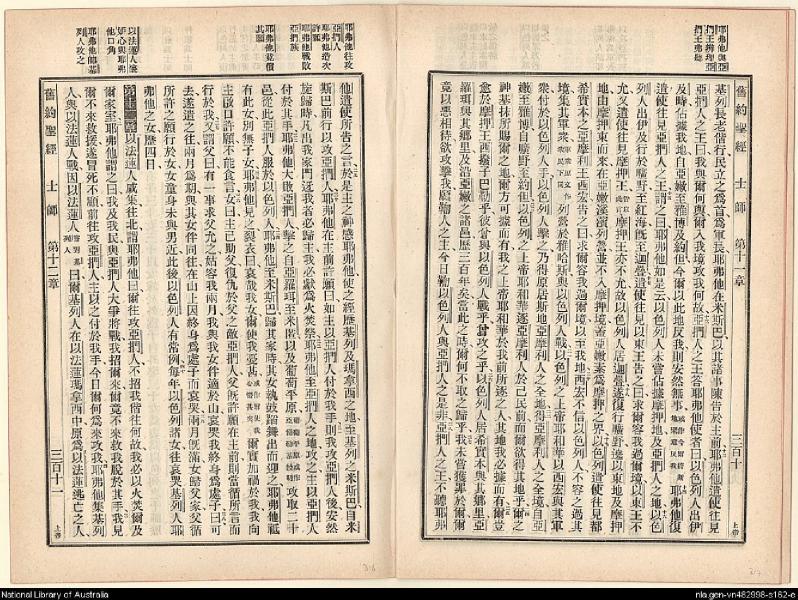 耶弗他與亞
捫王辨理亞
捫王弗聽
舊約聖經 士師 第十一章 三百十 上帝
基列長老偕行民立之爲首爲軍長耶弗他在米斯巴以其諸事陳告於主前耶弗他遣使見
亞捫人之王曰我與爾何與爾入我境攻我何故亞捫人之王答耶弗他使者曰以色列人出伊
及時佔據我地自亞嫩至雅博及約但今爾以此地反我則安然無事 耶弗他復
遣使往見亞捫人之王謂之曰耶弗他如是云以色列人未嘗佔據摩押地及亞捫人之地以色
列人出伊及行於曠野至紅海旣至迦疊遣使往見以東王告之曰求爾容我過爾境以東王不
允又遣使往見摩押王 摩押王亦不允故以色列人居迦疊遂復行曠野遶以東地及摩押
地由摩押東而來在亞嫩溪濱列營並不入摩押境蓋亞嫩素爲摩押之界以色列遣使往見都
希實本之亞摩利王西宏告之曰求爾容我過爾境以至我地西宏不信以色列人不容之過其
境集其軍衆 列營於雅哈斯與以色列人戰以色列之上帝耶和華以西宏與其軍
衆付於以色列人手以色列人擊之乃得原居斯地亞摩利人之全地得亞摩利人之全境自亞
嫩至雅博自曠野至約但以色列之上帝耶和華逐亞摩利人於己民前而爾欲得其地乎爾之
神基抹所賜爾之地爾方可據而有我之上帝耶和華於我前所逐之人其地我必據而有爾豈
愈於摩押王西撥子巴勒乎彼曾與以色列人戰乎曾攻之乎以色列人居希實本與其鄉里亞
羅珥與其鄉里及沿亞嫩之諸邑歷三百年矣當此之時爾何不取之歸乎我未嘗獲罪於爾爾
竟以惡相待欲攻擊我願鞫人之主今日鞫以色列人與亞捫人之是非亞捫人之王不聽耶弗
耶弗他往攻
亞捫人
耶弗他造次
許願
耶弗他戰敗
亞捫族
耶弗他乃償
其願
以法蓮人懷
妬心與耶弗
他口角
耶弗他師基
列人攻之
他遣使所告之言於是主之神感耶弗他使之經歷基列及瑪拿西之地至基列之米斯巴自米
斯巴前行以攻亞捫人耶弗他在主前許願曰如主以亞捫人付於我手則我攻亞捫人後安然
旋歸時凡出我家門迓我者必歸主我必獻爲火焚祭耶弗他至亞捫人之地攻之主以亞捫人
付於其手耶弗他大敗亞捫人擊之自亞羅珥至米匿以及葡萄平原 攻取二十
邑從此亞捫人服於以色列人耶弗他至米斯巴歸其家時其女執鼗踏舞出而迎之耶弗他祗
有此女別無子女耶弗他見之裂衣曰哀哉我女爾使我憂甚 爾實加禍於我我向
主啟口許願不能食言女曰主已爲父復仇於父之敵亞捫人父旣許願在主前則當循所言而
行於我又謂父曰有一事求父允之姑容我兩月我與女伴適於山哀哭我終身爲處子曰可
去遂遣之往兩月爲期與其女伴同往在山上因終身爲處子而哀哭兩月旣滿女歸父家父循
所許之願行於女女童身未與男近此後以色列人有常例每年以色列諸女往哀哭基列人耶
弗他之女歷四日
第十二章以法蓮人咸集往北謂耶弗他曰爾往攻亞捫人不招我偕往何故我必以火焚爾及
爾家室耶弗他謂之曰我及我民與亞捫人大爭將戰我招爾來爾竟不來救我脫於其手我見
爾不來救援遂冒死不顧前往攻亞捫人主以之付於我手今日爾何爲來攻我耶弗他集基列
人與以法蓮人戰因以法蓮人 曰爾基列人在以法蓮瑪拿西中原爲以法蓮逃亡之人
舊約聖經 士師 第十二章 三百十一 上帝
316
317
National Library of Australia
nla.gen-vn482998-s162-e